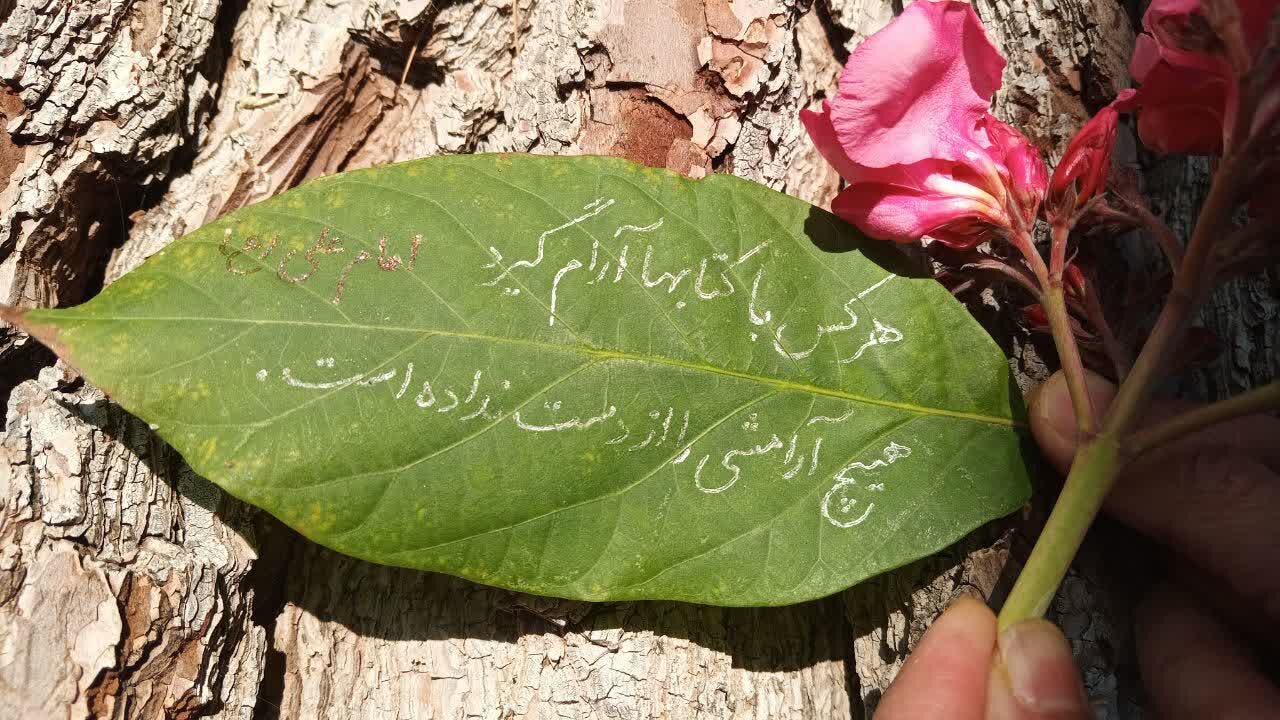 هر کس با کتابها آرام گیرد
امام علی (ع)
هیچ آرامشی را از دست نداده است.